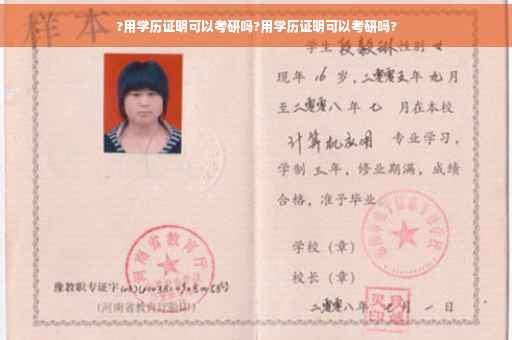 ?用学历证明可以考研吗?用学历证明可以考研吗?
样本
学生 段毅琳 性别 女
现年 16 岁，二零零五年 九 月
至二零零八年 七 月在本校
计算机应用 专业学习，
学制 三 年，修业期满，成绩
合格，准予毕业
学校（章）
校长（章）
二零零八年 七 月 一 日
河南省教育厅
豫教职专证字
（河南省教育厅验印）